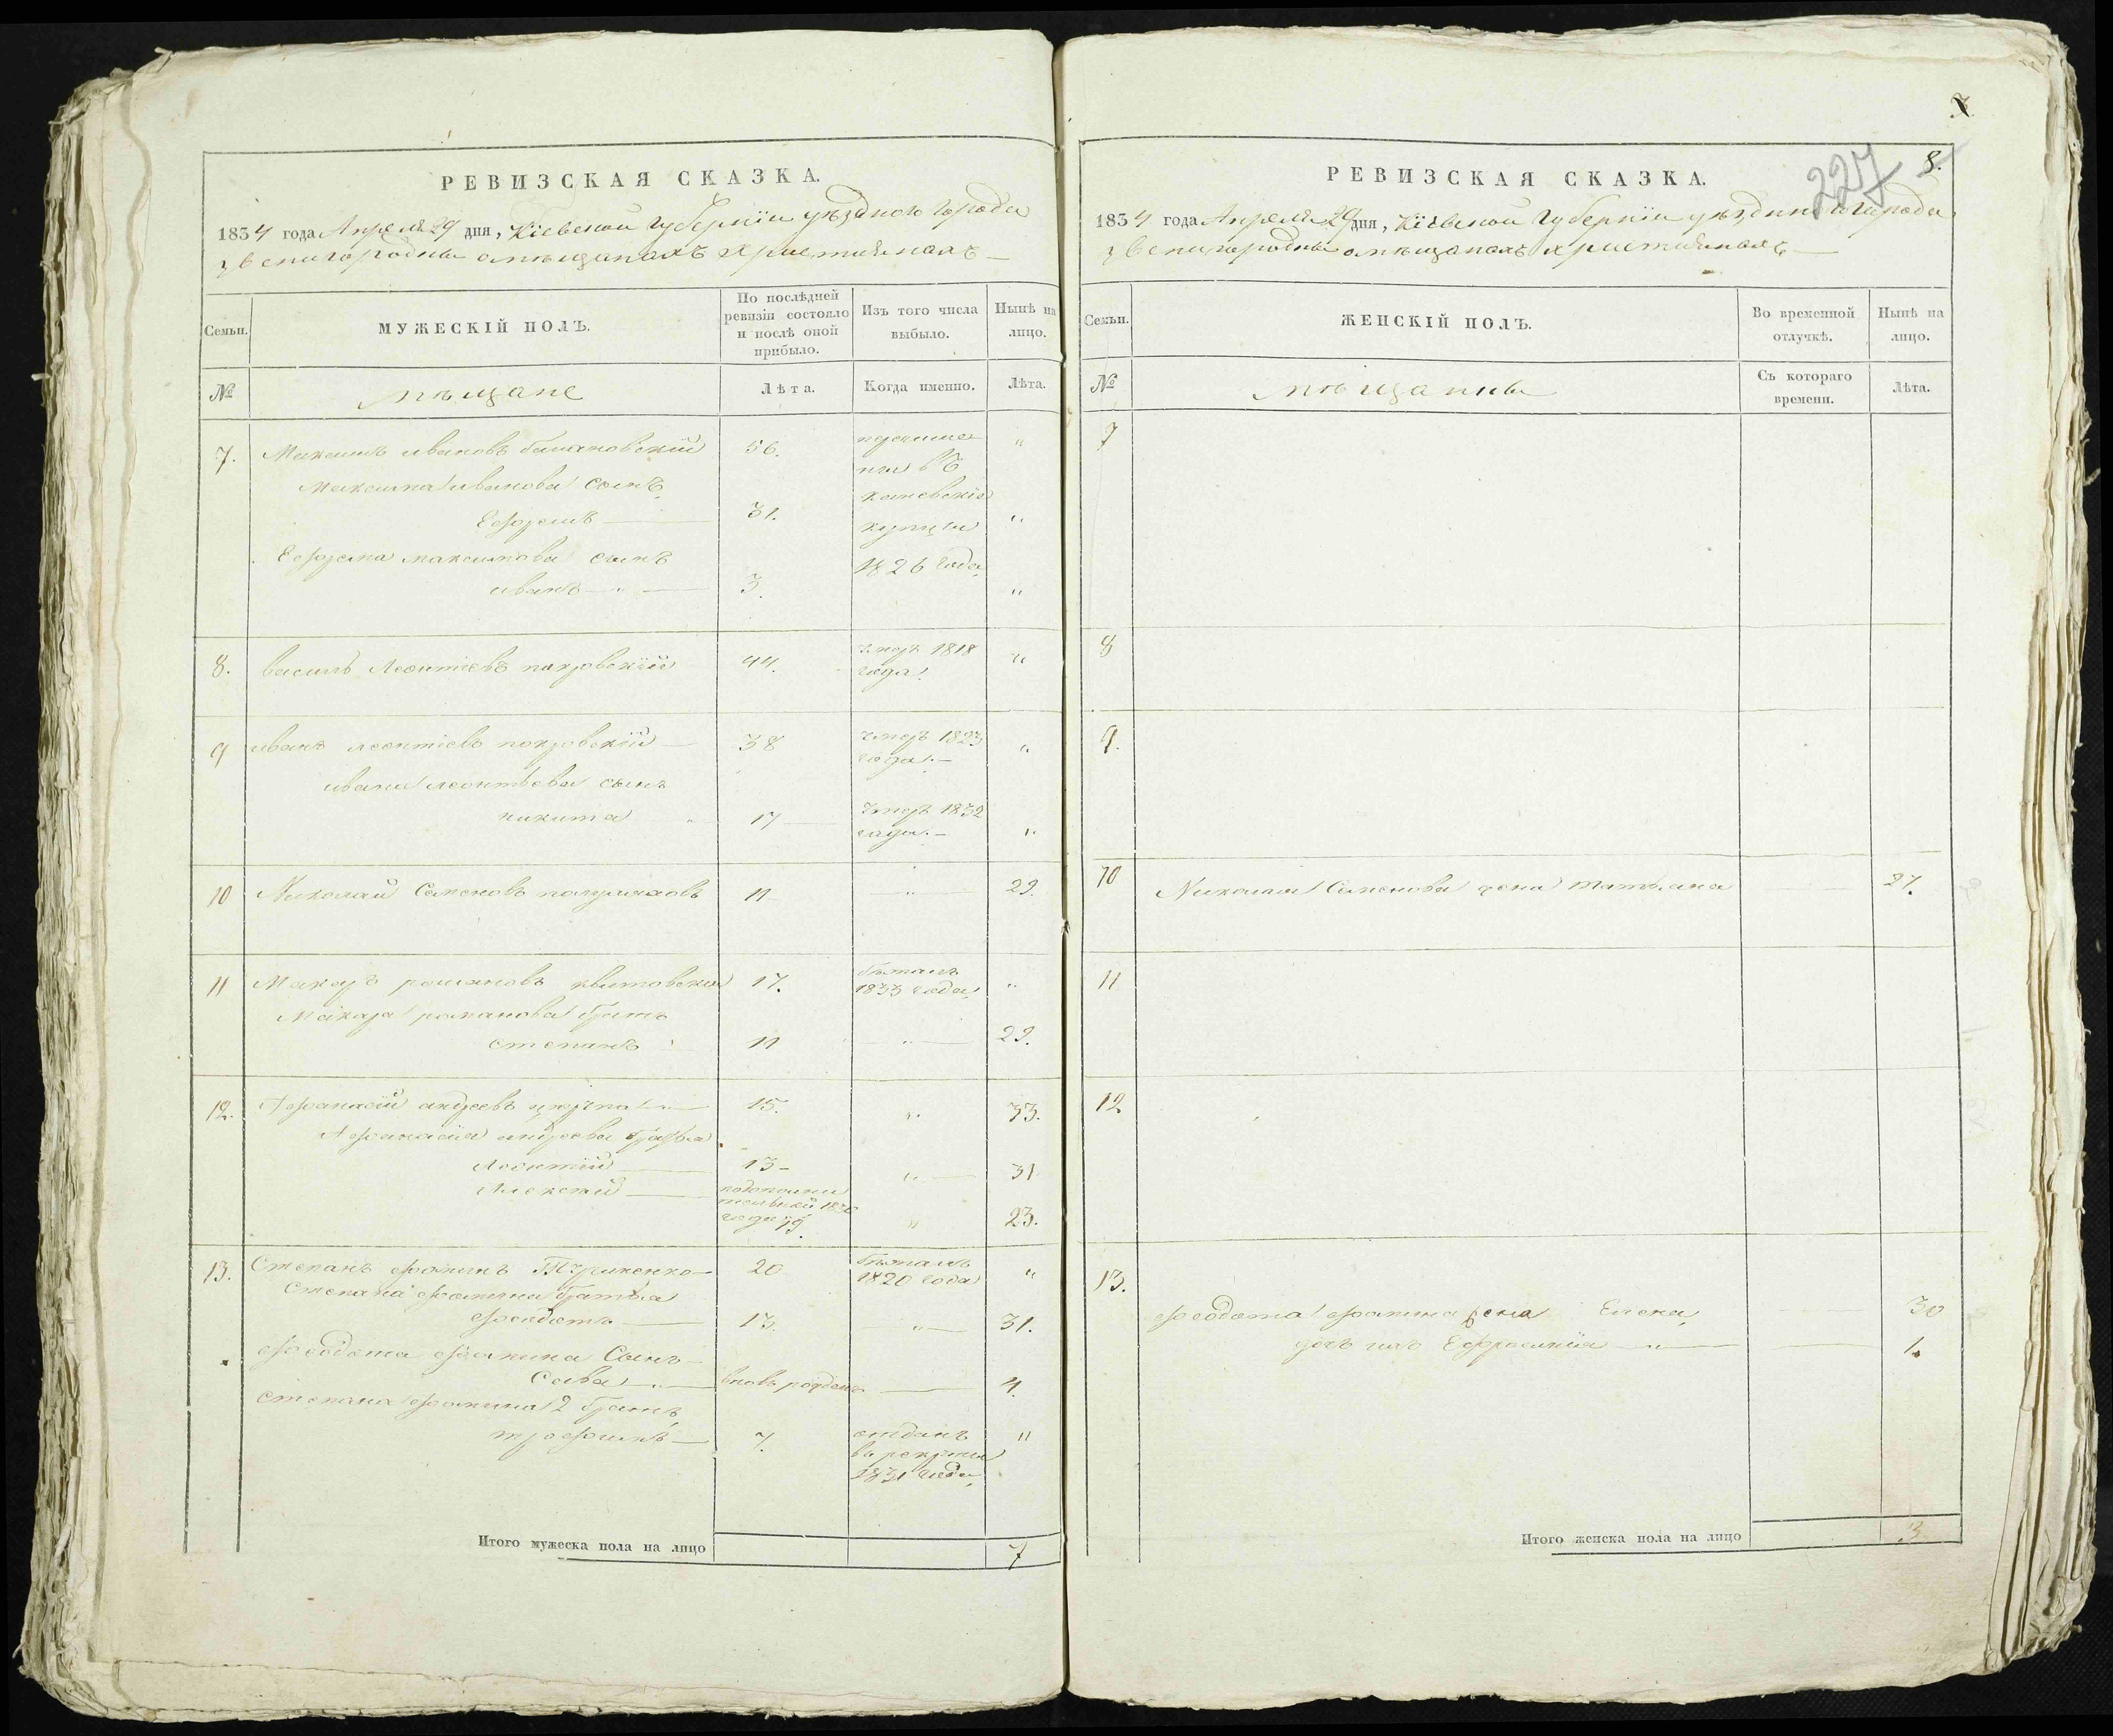 РЕВИЗСКАЯ СКАЗКА.
1834 года Апреля 29 дня, Кіевской Губерніи уѣзднаго города
звенигородки омѣщанахъ христіянахъ
Семьи.
МУЖЕСКІЙ ПОЛЪ.
По послѣдней
ревизіи состояло
и послѣ оной
прибыло.
Изъ того числа
выбыло.
Нынѣ на
лицо.
№
мѣщане
Лѣта.
Когда именно.
Лѣта.
7. Максимъ ивановъ 56. "
въ
Максима иванова сынъ каневскіе
Ефремъ 31. купцы "
Ефрема максимова сынъ 1826 года
иванъ " 3. "
8. василь Леонтіевъ покровскій 44. умеръ 1818 "
года
9 иванъ леонтіевъ покровскій 38 умеръ 1823 "
года.
ивана леонтьева сынъ
никита " 17 умеръ 1832
года. "
10 Николай Семеновъ 11 " 29.
11 Макаръ романовъ 17. бѣжалъ "
1833 года
Макара романова братъ
степанъ 11 " 29.
12. Афанасій андреевъ 15. " 33.
Афанасія андреева братья
Леонтій 13 " 31
Алексей подополни
тельной 1830
года 19. " 23.
13. Степанъ фоминъ 20 бѣжалъ "
1820 года
Степана фомина братья
феодотъ 13 " 31.
феодота фомина Сынъ
Сава " вновь рожденъ 4.
степана фомина 2 братъ
трофимъ 7. отданъ "
в рекруты
1831 года
Итого мужеска пола на лицо 7
8.
227
РЕВИЗСКАЯ СКАЗКА.
1834 года Апреля 29 дня, Кіевской Губерніи уѣзднаго города
звенигородки омѣщанахъ христіянахъ
Семьи.
ЖЕНСКІЙ ПОЛЪ.
Во временной
отлучкѣ.
Нынѣ на
лицо.
№
мѣщанки
Съ котораго
времени.
Лѣта.
7
8
9.
10 Николая Семенова жена татьяна 27.
11
12
13.
феодота фомина жена Елена 30
дочь ихъ Ефросинія " 1.
Итого женска пола на лицо 3